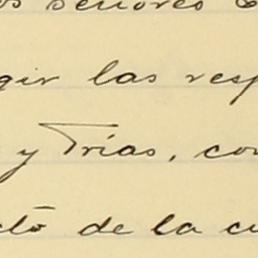 os señores
gir las resp
y Trías, con
cto de la cu